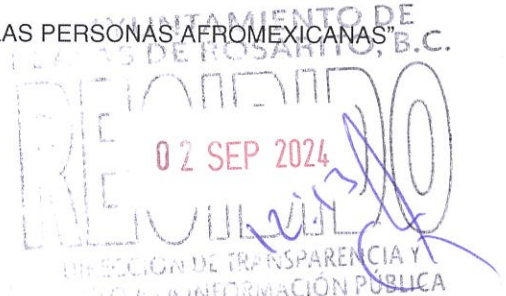 LAS PERSONAS AFROMEXICANAS”
AYUNTAMIENTO DE
DE ROSARITO, B.C.
RECIBIDO
02 SEP 2024
12:13
DIRECCIÓN DE TRANSPARENCIA Y
INFORMACIÓN PÚBLICA